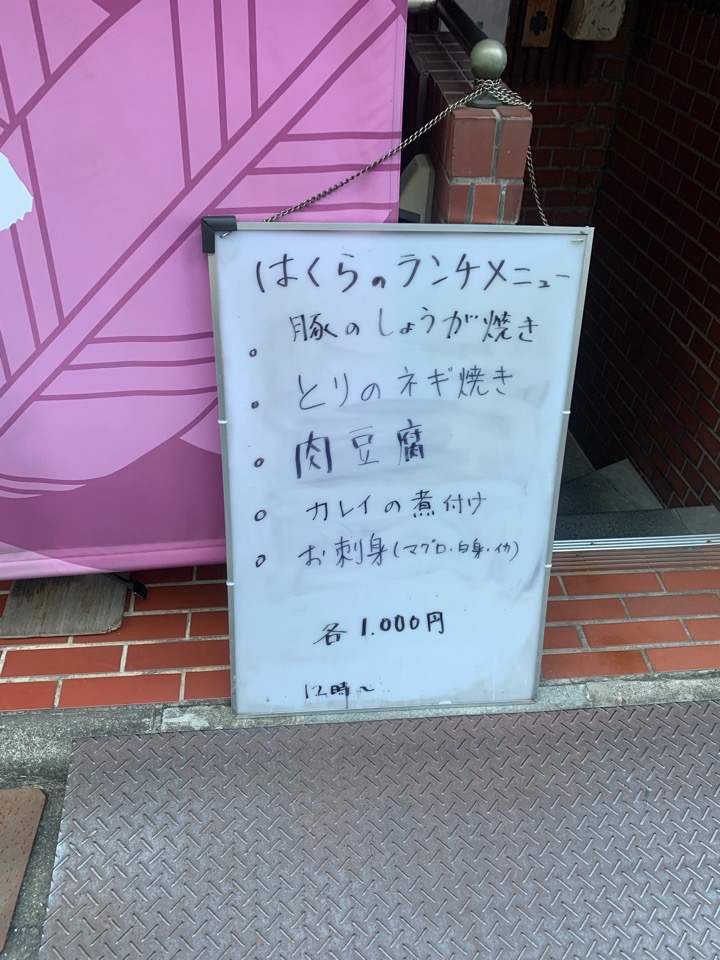 はくらのランチメニュー
豚のしょうが焼き
とりのネギ焼き
肉豆腐
カレイの煮付け
お刺身(マグロ・白身・イカ)
各1.000円
12時〜